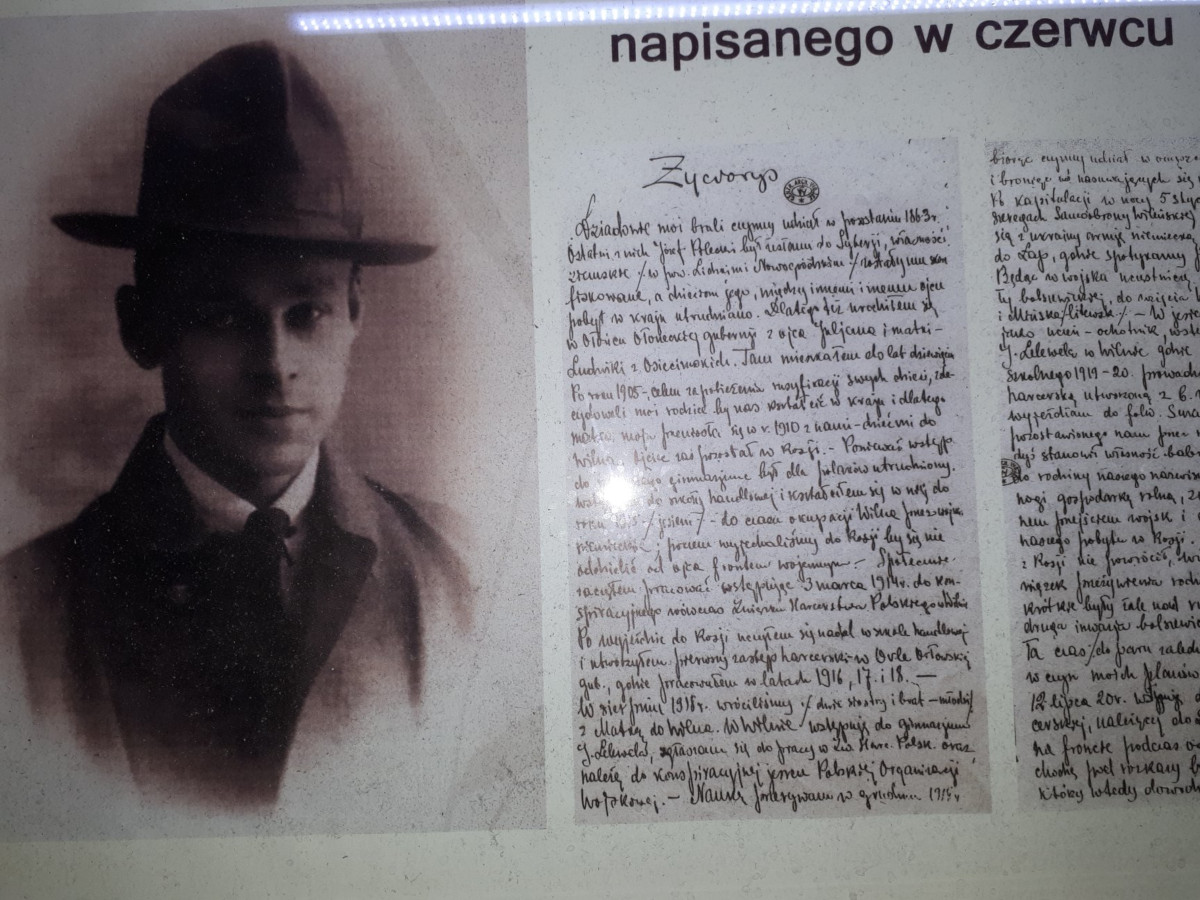 napisanego w czerwcu
Życiorys
Dziadowie moi brali czynny udział w powstaniu 1863 r.
Ostatni z nich Józef Pilecki był zesłany do Syberji, własności
ziemskie /w pow. Lidzkim i Nowogródzkim/ zostały mu skon
fiskowane, a dzieciom jego, między innemi i memu ojcu
pobyt w kraju utrudniano. Dlatego też urodziłem się
w Ołońcu Ołonieckiej gubernji z ojca Juljana i matki -
Ludwiki z Osiecimskich. Tam mieszkałem do lat dziewięciu
Po roku 1905 - celem zapobieżenia rusyfikacji swych dzieci, zde-
cydowali moi rodzice by nas kształcić w kraju i dlatego
matka moja przeniosła się w r. 1910 z nami - dziećmi do
Wilna, ojciec zaś pozostał w Rosji. - Ponieważ wstęp
do gimnazjum był dla polaków utrudniony,
do szkoły handlowej i kształciłem się w niej do
roku 1915 /jesieni/ - do czasu okupacji Wilna przez wojska
niemieckie, poczem wyjechaliśmy do Rosji by się nie
oddzielić od ojca frontem wojennym - Społecznie
zacząłem pracować wstępując 3 marca 1914r. do kon-
spiracyjnego wówczas Związku Harcerstwa Polskiego w Wilnie
Po wyjeździe do Rosji uczyłem się nadal w szkole handlowej
i utworzyłem pierwszy zastęp harcerski w Orle Orłowskiej
gub., gdzie pracowałem w latach 1916, 17 i 18. —
W sierpniu 1918r. wróciliśmy /dwie siostry i brat - młodsi/
z Matką do Wilna. W Wilnie wstępuję do gimnazjum
J. Lelewela, zgłaszam się do pracy w Zw. Harc. Polsk. oraz
należę do konspiracyjnej Polskiej Organizacji
Wojskowej. - Naukę przerywam w grudniu 1918r
biorąc czynny udział w
i broniąc od nasuwających się
Po kapitulacji w nocy 5
szeregach Samoobrony Wileńskiej
się z ukrainy armję niemiecką
do Łap, gdzie spotykamy
Będąc w wojsku
bolszewickiej, do zajęcia
i Mińska /litewsk/ - W
jako uczeń - ochotnik,
J. Lelewela w Wilnie gdzie
szkolnego 1919-20. prowadzę
harcerską utworzoną z 6.
wyjeżdżam do folw.
pozostawionego nam przez
dyś stanowił własność
do rodziny naszego nazwiska
nogi gospodarkę rolną,
nem przejściem wojsk i
naszego pobytu w Rosji.
z Rosji nie powrócił,
wiązek przeżywienia
krótkie były
druga inwazja
Ta czas /do paru
w czyn moich planów
12 lipca 20r.
cerskiej, należącej do
na froncie podczas
chodzą pod rozkazy
który wtedy